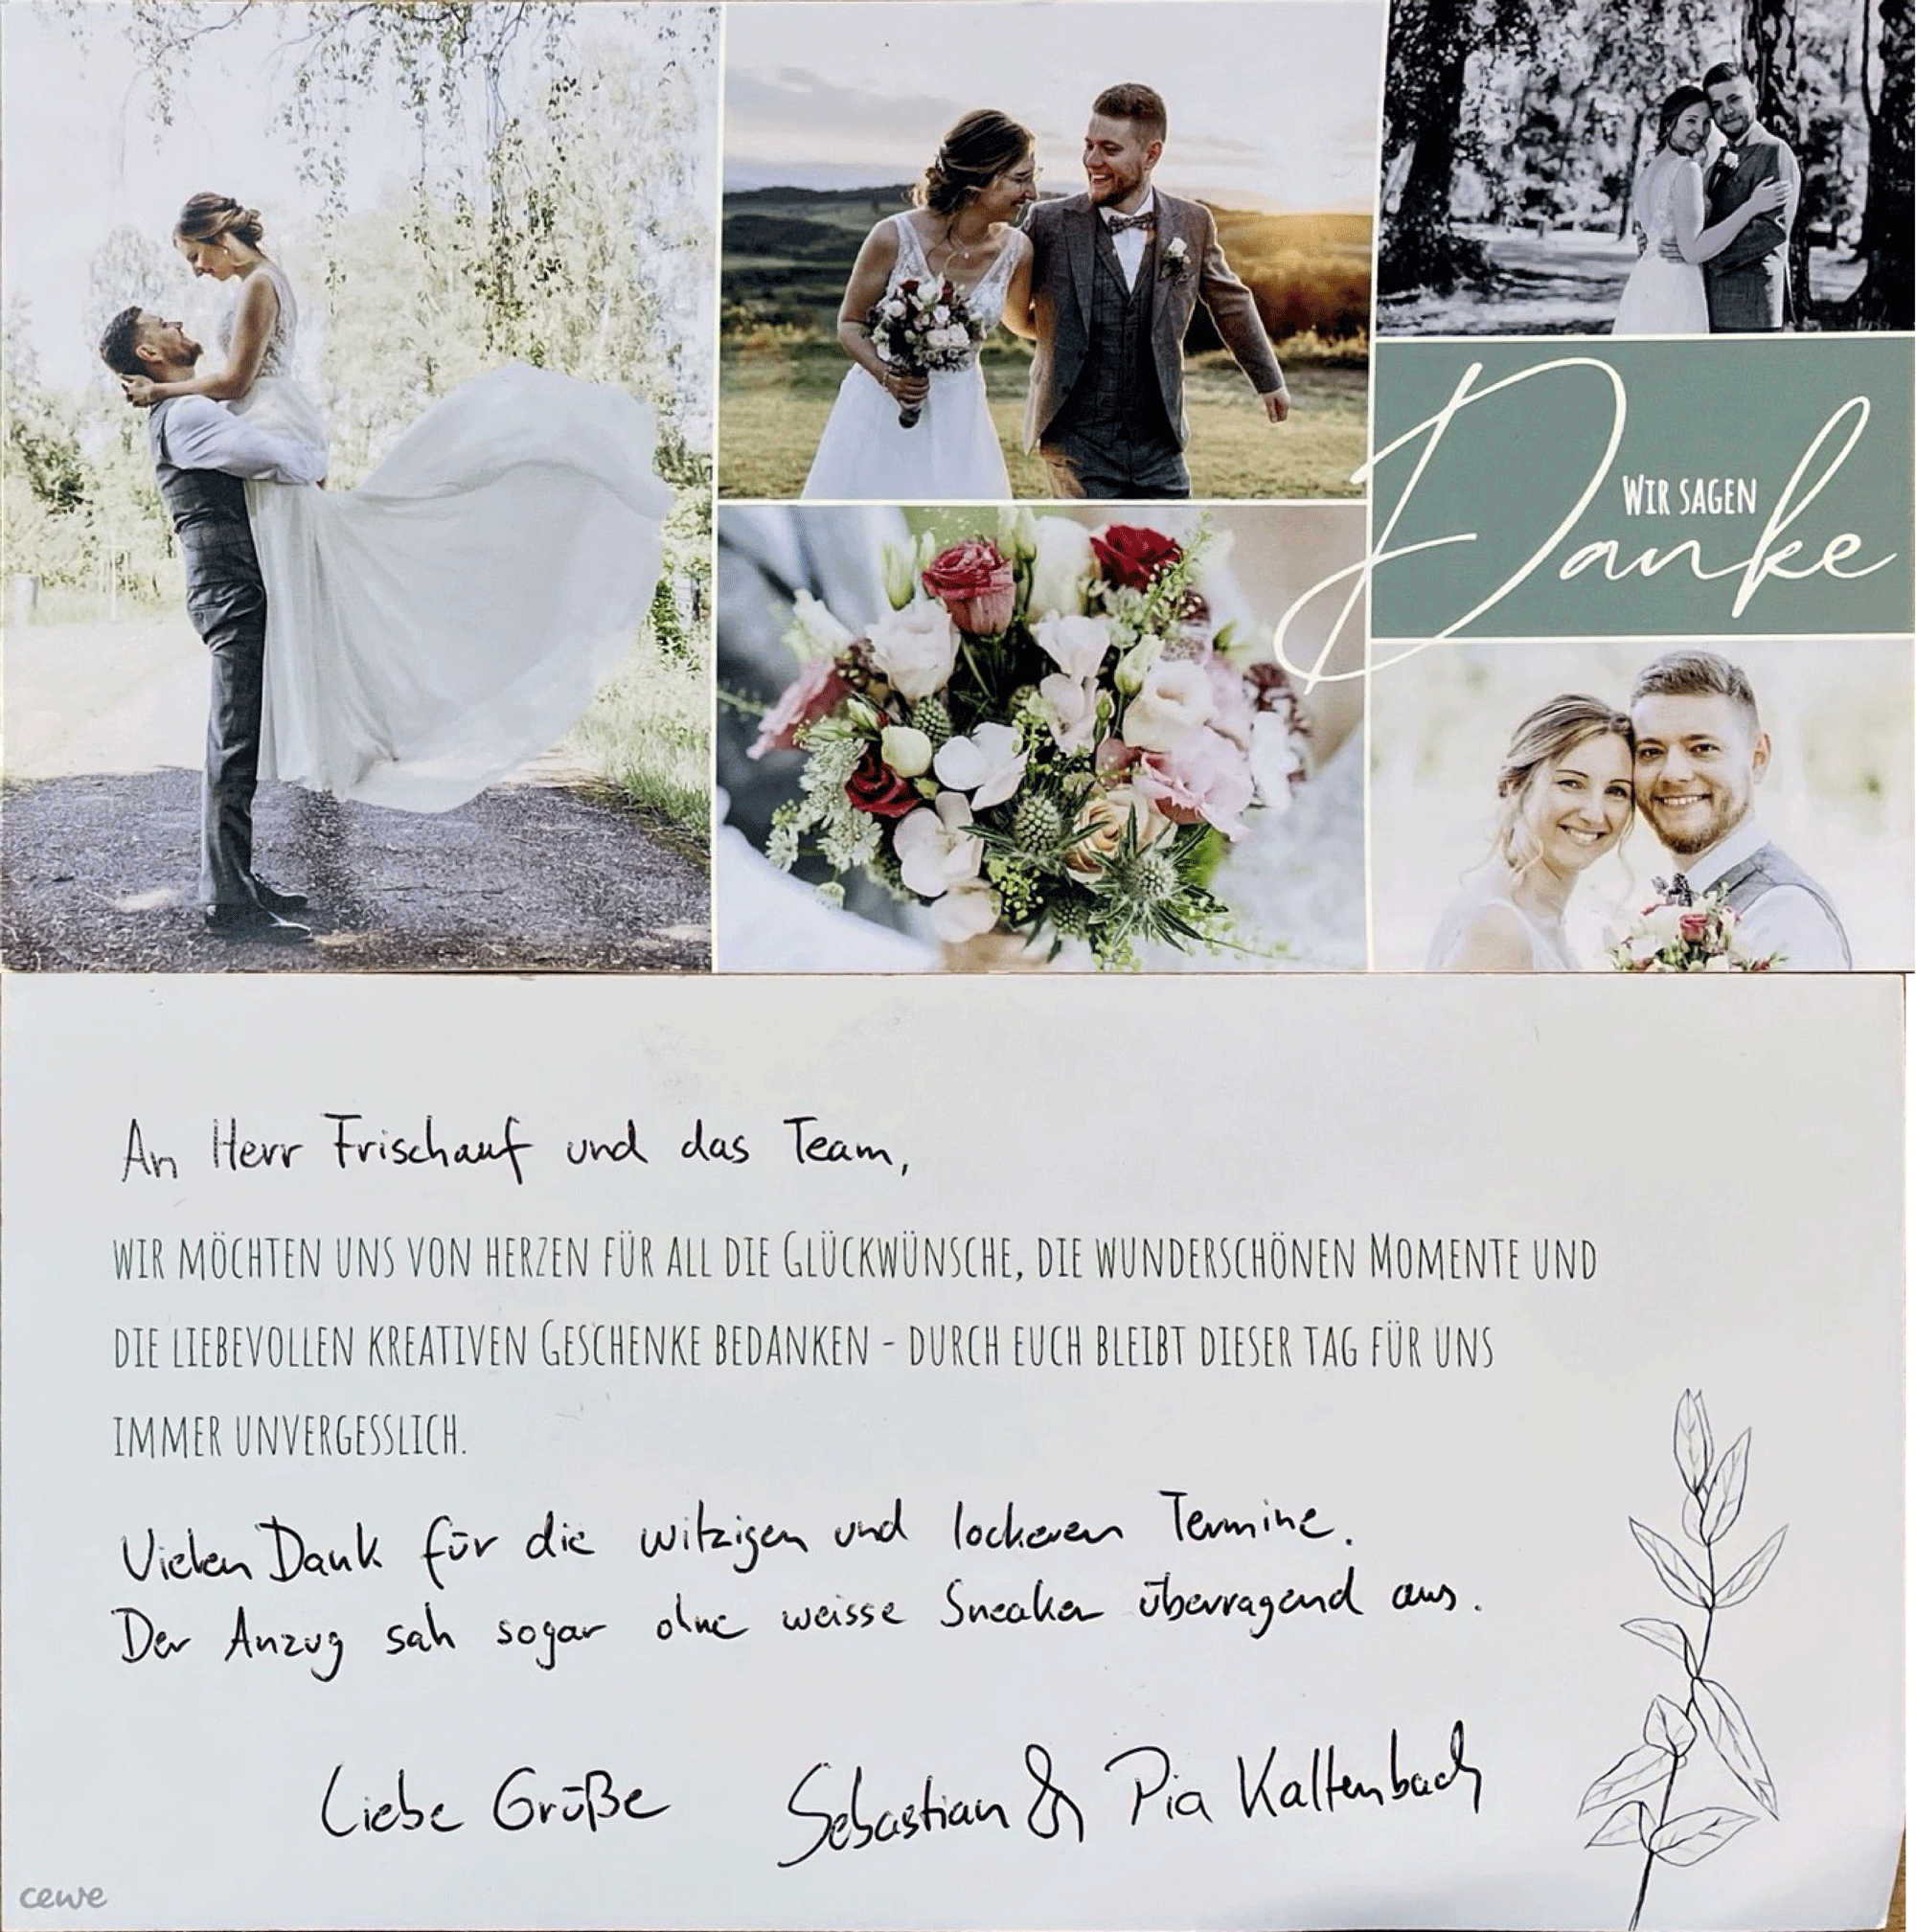 WIR SAGEN
Danke
An Herr Frischauf und das Team,
WIR MÖCHTEN UNS VON HERZEN FÜR ALL DIE GLÜCKWÜNSCHE, DIE WUNDERSCHÖNEN MOMENTE UND
DIE LIEBEVOLLEN KREATIVEN GESCHENKE BEDANKEN - DURCH EUCH BLEIBT DIESER TAG FÜR UNS
IMMER UNVERGESSLICH.
Vielen Dank für die witzigen und lockeren Termine.
Der Anzug sah sogar ohne weisse Sneaker überragend aus.
Liebe Grüße Sebastian & Pia Kaltenbach
cewe